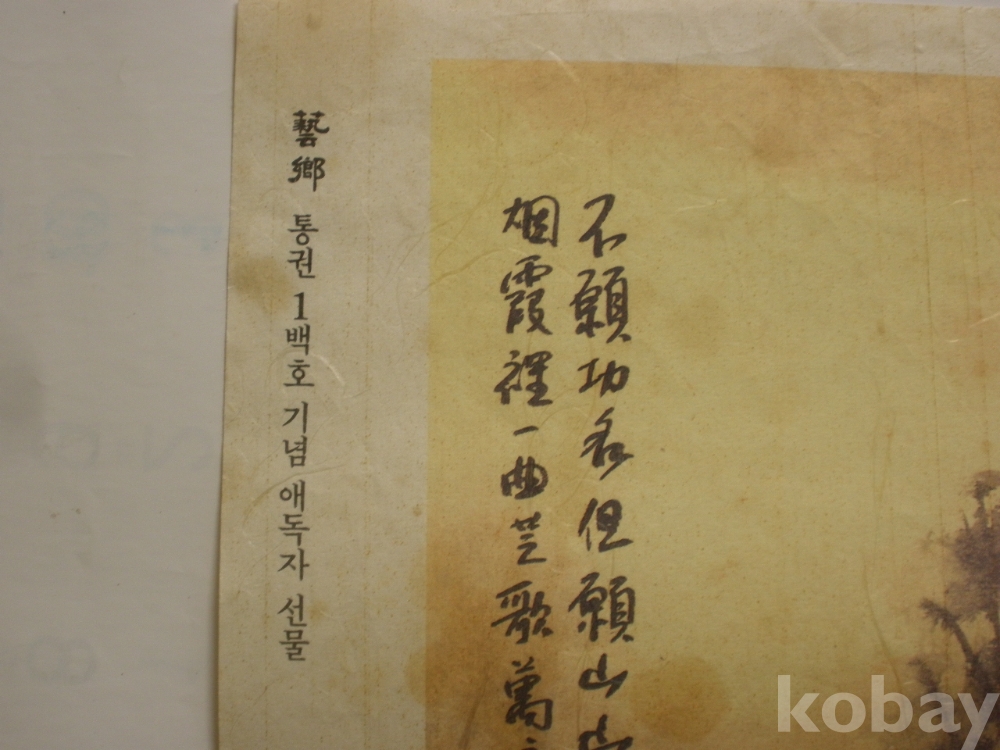 藝鄉 통권 1백호 기념 애독자 선물
不願功名但願山
烟霞裡一曲芝歌萬
kobay